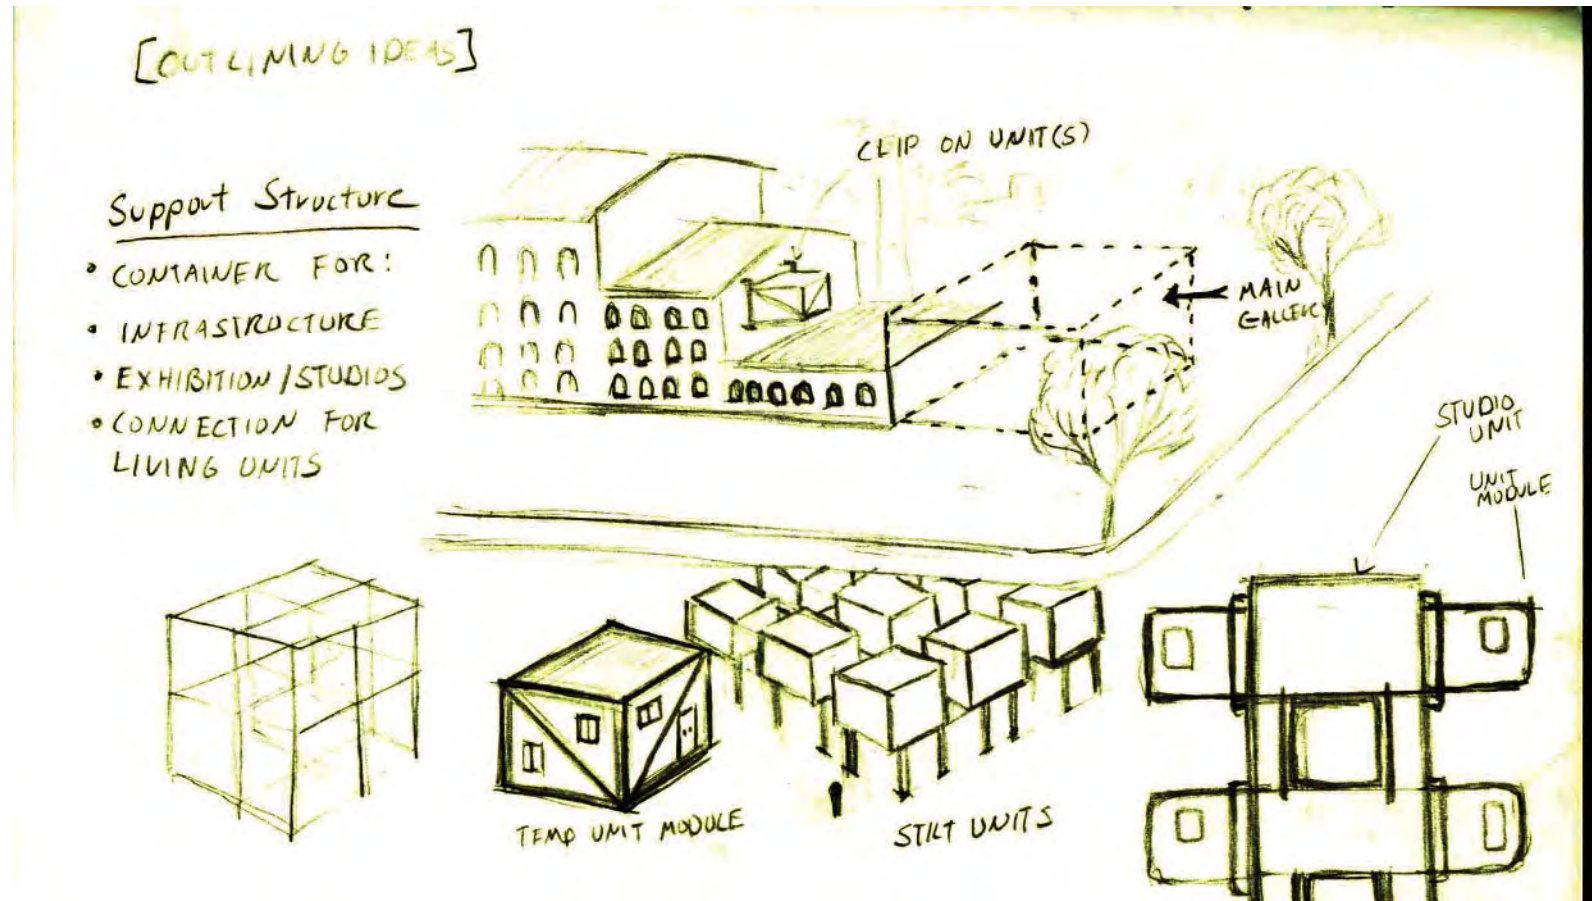 [OUTLINING IDEAS]
CLIP ON UNIT(S)
Support Structure
• CONTAINER FOR:
• INFRASTRUCTURE
• EXHIBITION/STUDIOS
• CONNECTION FOR
LIVING UNITS
MAIN
GALLERY
STUDIO
UNIT
UNIT
MODULE
TEMP UNIT MODULE
STILT UNITS